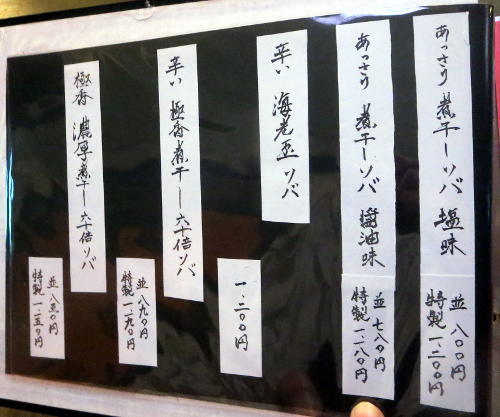 あっさり 煮干しソバ 塩味
並 八〇〇円
特製 一、二〇〇円
あっさり 煮干しソバ 醤油味
並 七八〇円
特製 一、一八〇円
辛い 海老玉ソバ
一、二〇〇円
辛い 極香煮干し六十倍ソバ
並 八九〇円
特製 一、二九〇円
極香 濃厚煮干し六十倍ソバ
並 八五〇円
特製 一、二五〇円